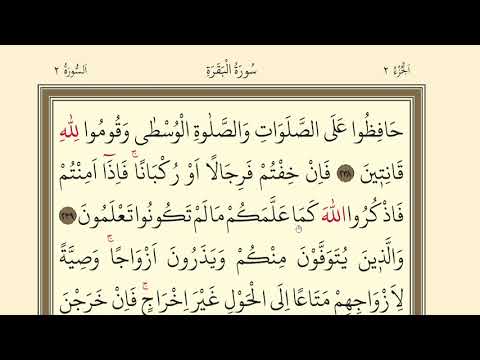 اَلْجُزْءُ ٢ سُورَةُ الْبَقَرَةِ اَلسُّورَةُ ٢
حَافِظُوا عَلَى الصَّلَوَاتِ وَالصَّلٰوةِ الْوُسْطٰى وَقُومُوا لِلّٰهِ
قَانِتٖينَ ﴿٢٣٨﴾ فَاِنْ خِفْتُمْ فَرِجَالًا اَوْ رُكْبَانًاۚ فَاِذَٓا اَمِنْتُمْ
فَاذْكُرُوا اللّٰهَ كَمَا عَلَّمَكُمْ مَالَمْ تَكُونُوا تَعْلَمُونَ ﴿٢٣٩﴾
وَالَّذٖينَ يُتَوَفَّوْنَ مِنْكُمْ وَيَذَرُونَ اَزْوَاجًاۚ وَصِيَّةً
لِاَزْوَاجِهِمْ مَتَاعًا اِلَى الْحَوْلِ غَيْرَ اِخْرَاجٍۚ فَاِنْ خَرَجْنَ